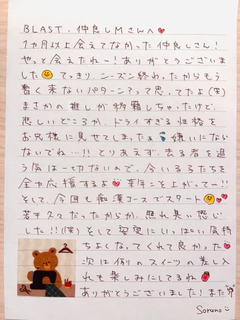 BLAST. 仲良しMさんへ
1カ月以上会えてなかった仲良しさん!
やっと会えたねー!ありがとうございま
した てっきり、シーズン終わったからもう
暫く来ないパターン?って思ってたよ(笑)
まさかの推しが移籍しちゃったけど、
悲しいどころか、ドライすぎる性格を
お兄様に見せてしまった 嫌いになら
ないでね…!! とりあえず、去る者を追
う気は一切ないので、今いる子たちを
全力応援するよ 来年こそ上がってー!!
そして、今回も痴漢コースでスタート
若干久でだったからか、照れ臭い感じ
した!!(笑) そして 堅実に いっぱい気持
ちよくなってくれて良かった
次は例のスイーツの差し入
れも楽しみにしてるね
ありがとうございました! また
Sorano